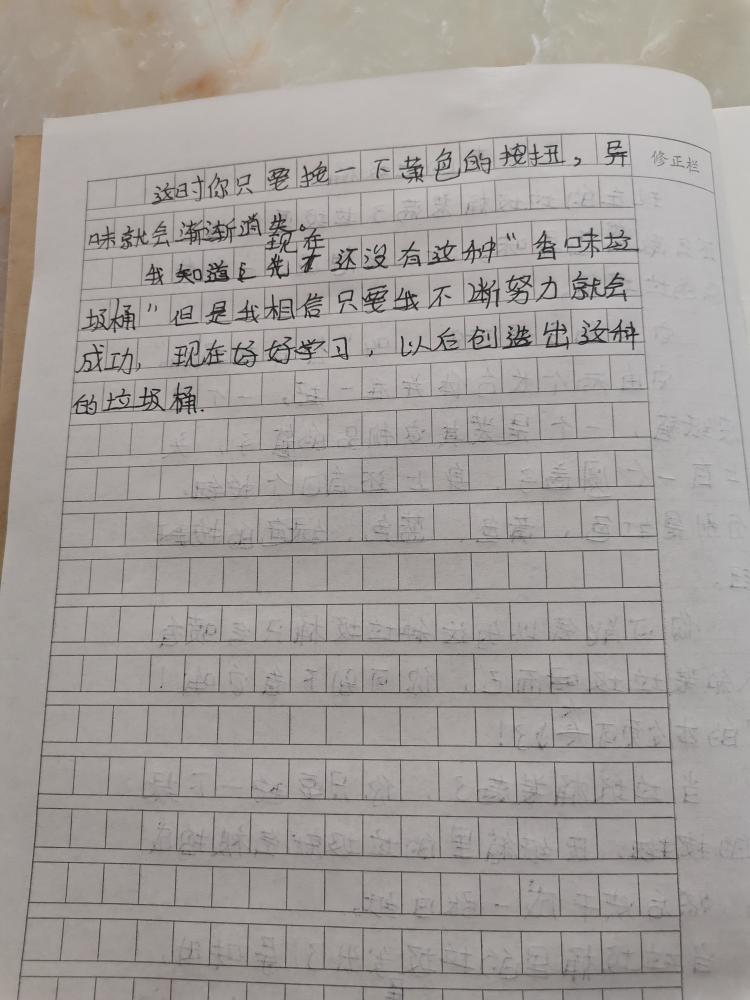 修正栏
这时你只要按一下黄色的按扭，异
味就会渐渐消失。
现在
我知道 还没有这种"香味垃
圾桶"但是我相信只要我不断努力就会
成功，现在好好学习，以后创造出这种
的垃圾桶.